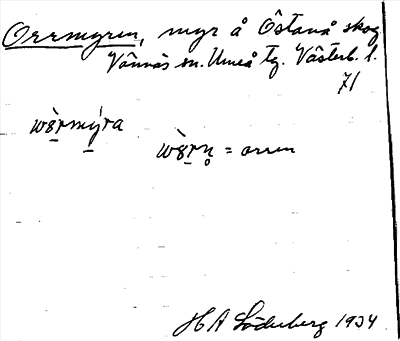 Orrmyren, myr å Östanå skog
Vännäs sn. Umeå tg. Västerb. l.
71
wèrmýra
wèrn̥ = orren
H A Söderberg 1934